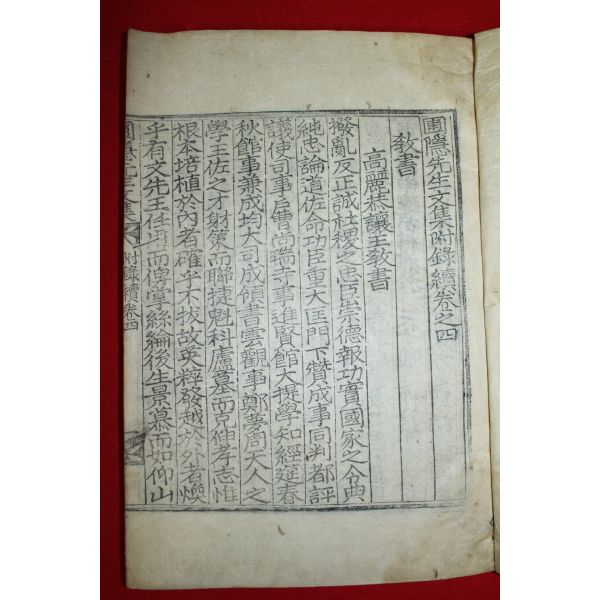 圃隱先生文集附錄續卷之四
敎書
高麗恭讓王敎書
撥亂反正誠社稷之忠臣崇德報功實國家之令典
純忠論道佐命功臣重大匡門下贊成事同判都評
議使司事戶曹尙瑞寺事進賢館大提學知經筵春
秋館事兼成均大司成領書雲觀事鄭夢周天人之
學王佐之才射策而聯捷魁科廬墓而克伸孝志惟
根本培植於內者確乎不拔故英粹發越於外者煥
乎有文先王任用而俾掌絲綸後生景慕而如仰山
圃隱先生文集 附錄續卷四